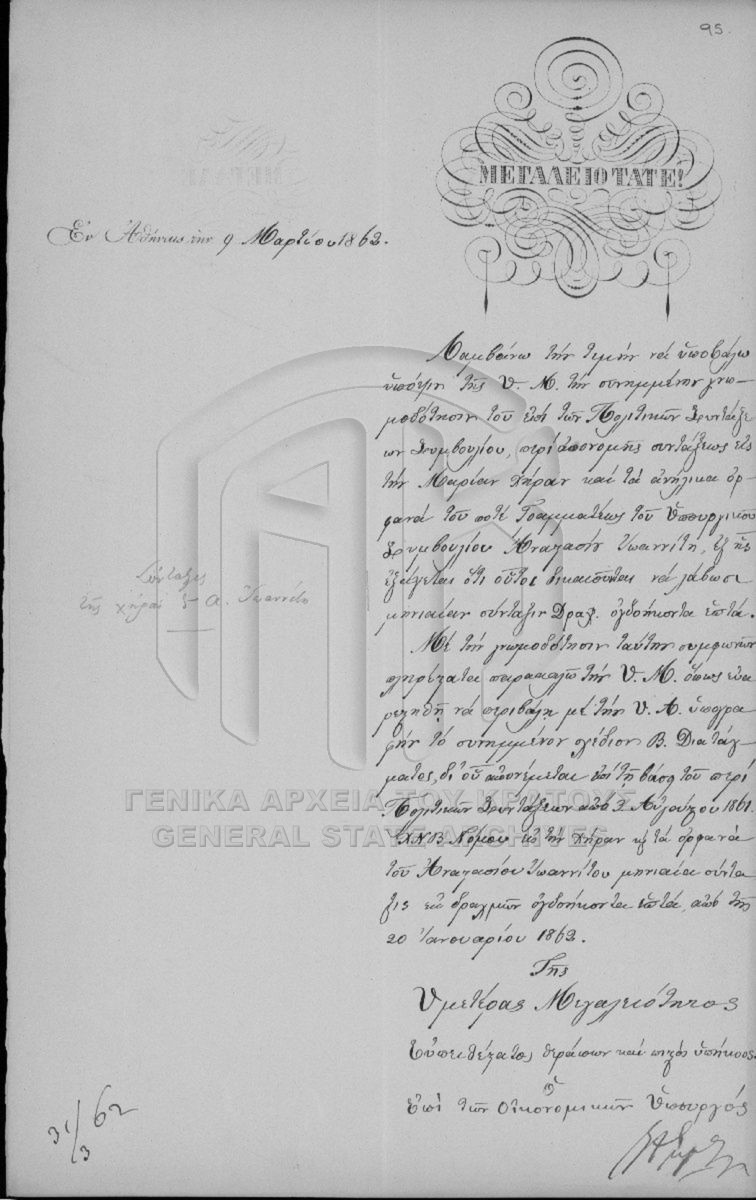 95.
ΜΕΓΑΛΕΙΟΤΑΤΕ!
Ἐν Ἀθήναις τὴν 9 Μαρτίου 1862.
Λαμβάνω τὴν τιμὴν νὰ ὑποβάλω
ὑπόψιν τῆς Υ. Μ. τὴν συνημμένην γνω-
μοδότησιν τοῦ ἐπὶ τῶν Πολιτικῶν Συντάξε
ων Συμβουλίου, περὶ ἀπονομῆς συντάξεως εἰς
τὴν Μαρίαν χήραν καὶ τὰ ἀνήλικα ὀρ-
φανὰ τοῦ ποτὲ Γραμματέως τοῦ Ὑπουργικοῦ
Συμβουλίου Ἀναστασίου Ἰωαννίτη, ἐξ ἧς
ἐξάγεται ὅτι οὗτοι δικαιοῦνται νὰ λάβωσι
μηνιαίαν σύνταξιν Δραχ. ὀγδοήκοντα ἑπτά.
Σύνταξις
τῆς χήρας Α. Ἰωαννίτου
Μὲ τὴν γνωμοδότησιν ταύτην συμφωνῶν
πληρέστατα παρακαλῶ τὴν Υ. Μ. ὅπως εὐα
ρεστηθῇ νὰ περιβάλῃ μὲ τὴν Υ. Α. ὑπογρα
φὴν τὸ συνημμένον σχέδιον Β. Διατάγ
ματος, δι' οὗ ἀπονέμεται ἐπὶ τῇ βάσει τοῦ περὶ
Πολιτικῶν Συντάξεων ἀπὸ Αὐγούστου 1861.
ΧΝΒ Νόμου εἰς τὴν χήραν κ τὰ ὀρφανὰ
τοῦ Ἀναστασίου Ἰωαννίτου μηνιαία σύντα
ξις ἐκ δραχμῶν ὀγδοήκοντα ἑπτά, ἀπὸ τῆς
20 Ἰανουαρίου 1862.
Τῆς
Ὑμετέρας Μεγαλειότητος
Εὐπειθέστατος θεράπων καὶ πιστὸς ὑπήκοος
ὁ
Ἐπὶ τῶν Οἰκονομικῶν Ὑπουργός
31/3 62
ΓΕΝΙΚΑ ΑΡΧΕΙΑ ΤΟΥ ΚΡΑΤΟΥΣ
GENERAL STATE ARCHIVES